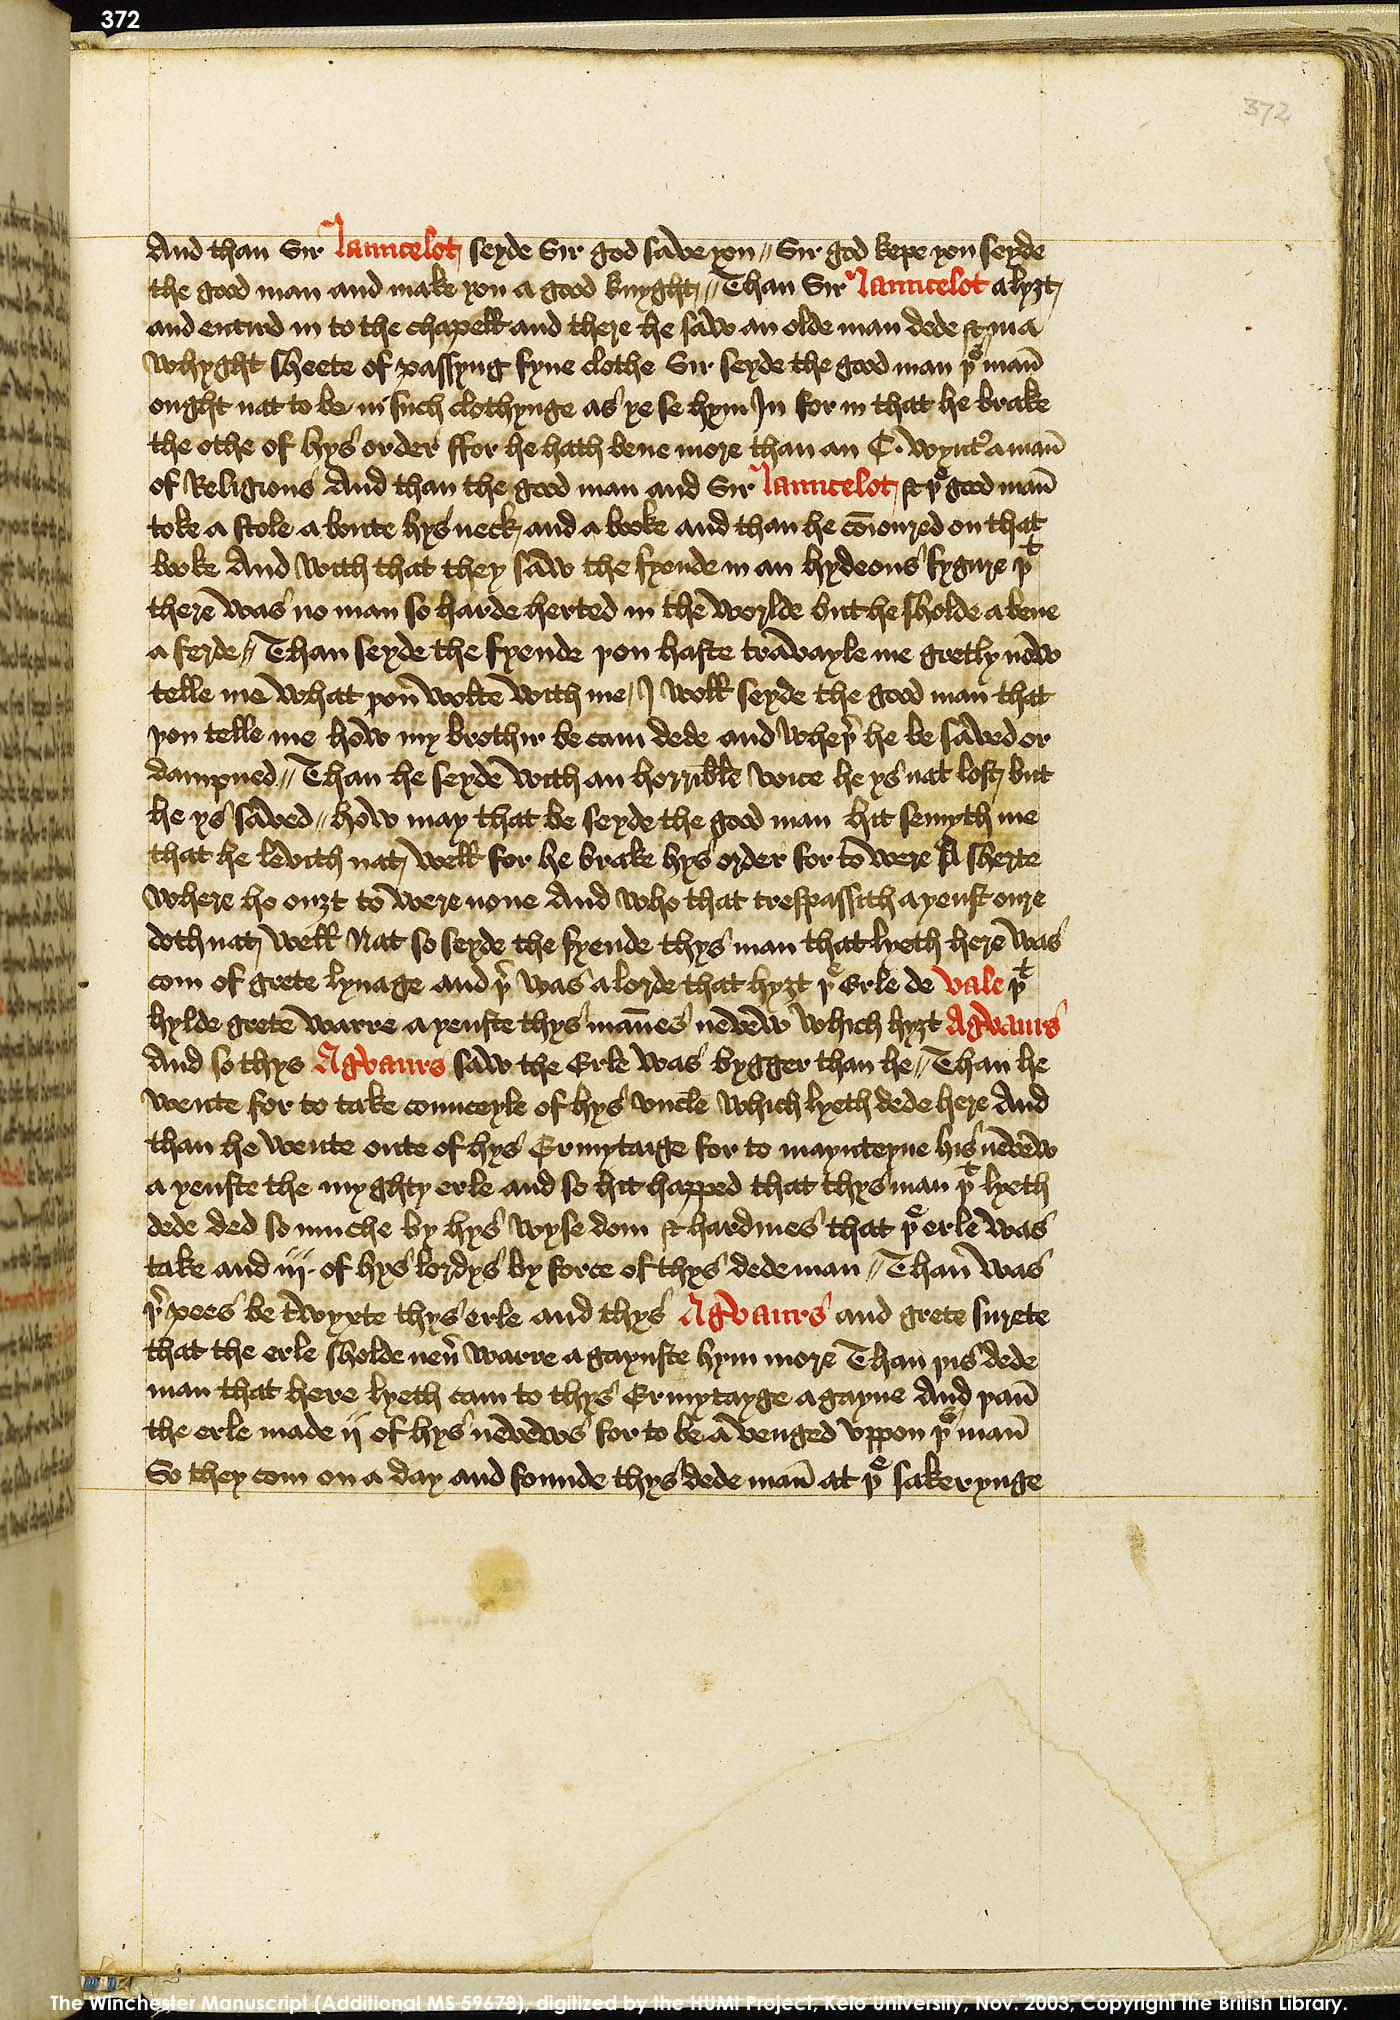 372
372
And than Sir Launcelot seyde Sir god save you // Sir god kepe you seyde
the good man and make you a good knyght // Than Sir Launcelot alyȝt
and entird in to the chapell and there he saw an olde man dede & in a
whyght sheete of passyng fyne clothe Sir seyde the good man þᵉ mañ
ought nat to be in such clothynge as ye se hym In for in that he brake
the othe of hys order ffor he hath bene more than an C. wynt̉ a mañ
of Religions And than the good man and Sir Launcelot & þᵉ good mañ
toke a stole a boute hys neck and a booke and than he cōioured on that
booke And with that they saw the fyende in an hydeous fygure þᵗ
there was no man so harde herted in the worlde but he sholde a bene
a ferde // Than seyde the fyende þou haste travayle me gretly now
telle me what þou wolte with me / I woll seyde the good man that
þou telle me how my brothir be cam dede and wheþ̉ he be saved or
dampned // Than he seyde with an horrible voice he ys nat lost but
he ys saved // how may that be seyde the good man hit semyth me
that he levith nat well for he brake hys order for to were A sherte
where he ouȝt to were none And who that trespassith ayenst oure
doth nat well Nat so seyde the fyende thys man that lyeth here was
com of grete lynage and þ̉ was a lorde that hyȝt þᵉ Erle de vale þᵗ
hylde grete warre a yenste thys mañes nevew which hyȝt Agwaurs
And so thys Agwaurs saw the Erle was bygger than he // Than he
wente for to take counceyle of hys vncle which lyeth dede here And
than he wente oute of hys Ermytaige for to maynteyne his nevew
a yenste the myghty erle and so hit happed that thys man þᵗ lyeth
dede ded so muche by hys wysedom & hardines that þᵉ erle was
take and iij. of hys lordys by force of thys dede man // Than was
þ̉ pees be twyxte thys erle and thys Agwaurs and grete surete
that the erle sholde neủ warre a gaynste hym more Than þis dede
man that here lyeth cam to thys Ermytayge a gayne And þañ
the erle made ij of hys nevews for to be a venged vppon þᵉ mañ
So they com on a day and founde thys dede mañ at þᵉ sakerynge
The Winchester Manuscript (Additional MS 59678), digitized by the HUMI Project, Keio University, Nov. 2003, Copyright the British Library.